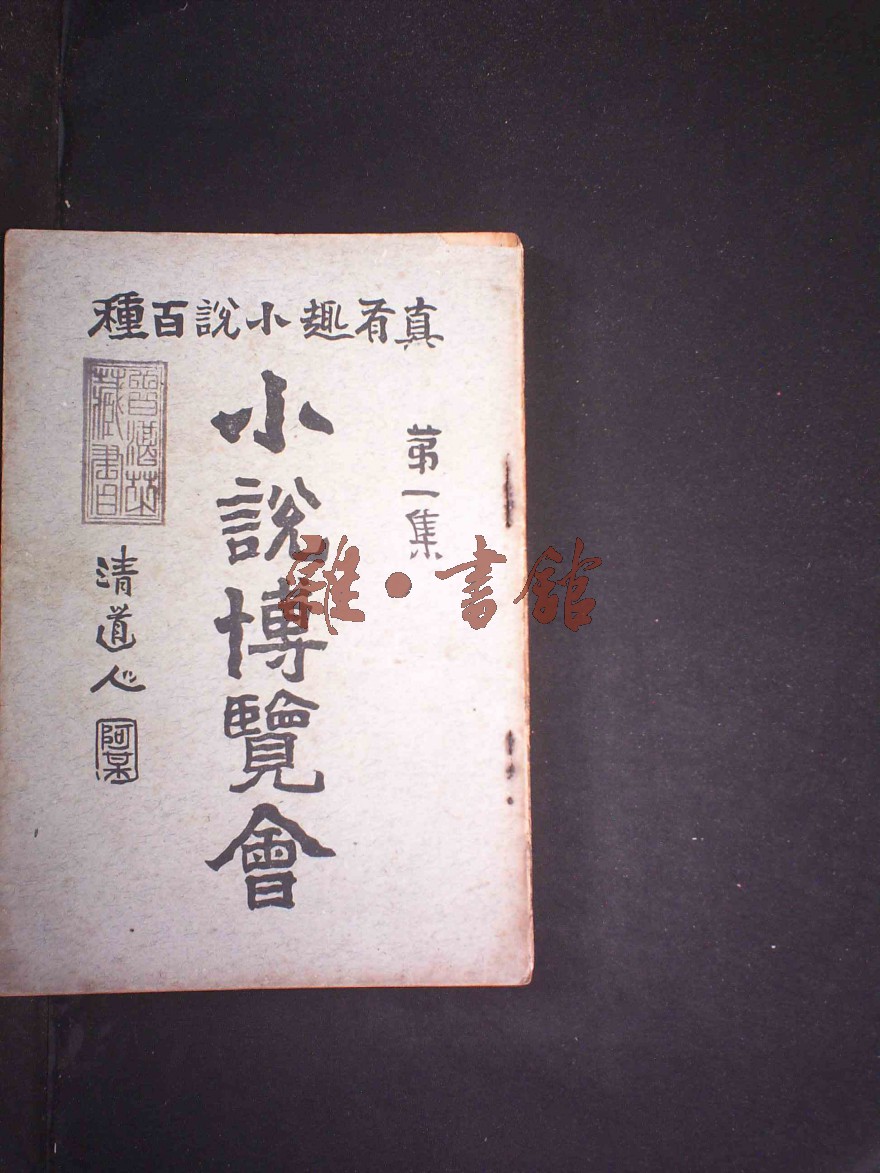 真有趣小說百種
第一集
小說博覽會
清道人
阿某
藏書印
雜·書館